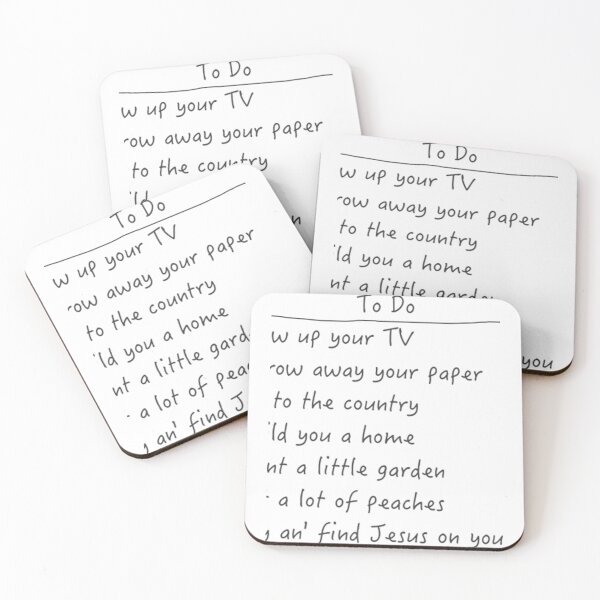 To Do
w up your TV
row away your paper
to the country
To Do
w up your TV
row away your paper
to the country
ld you a home
nt a little garden
you
To Do
w up your TV
row away your paper
to the country
ld you a home
nt a little gard
a lot of peac
, an' find J
To Do
w up your TV
row away your paper
to the country
ld you a home
nt a little garden
a lot of peaches
, an' find Jesus on you